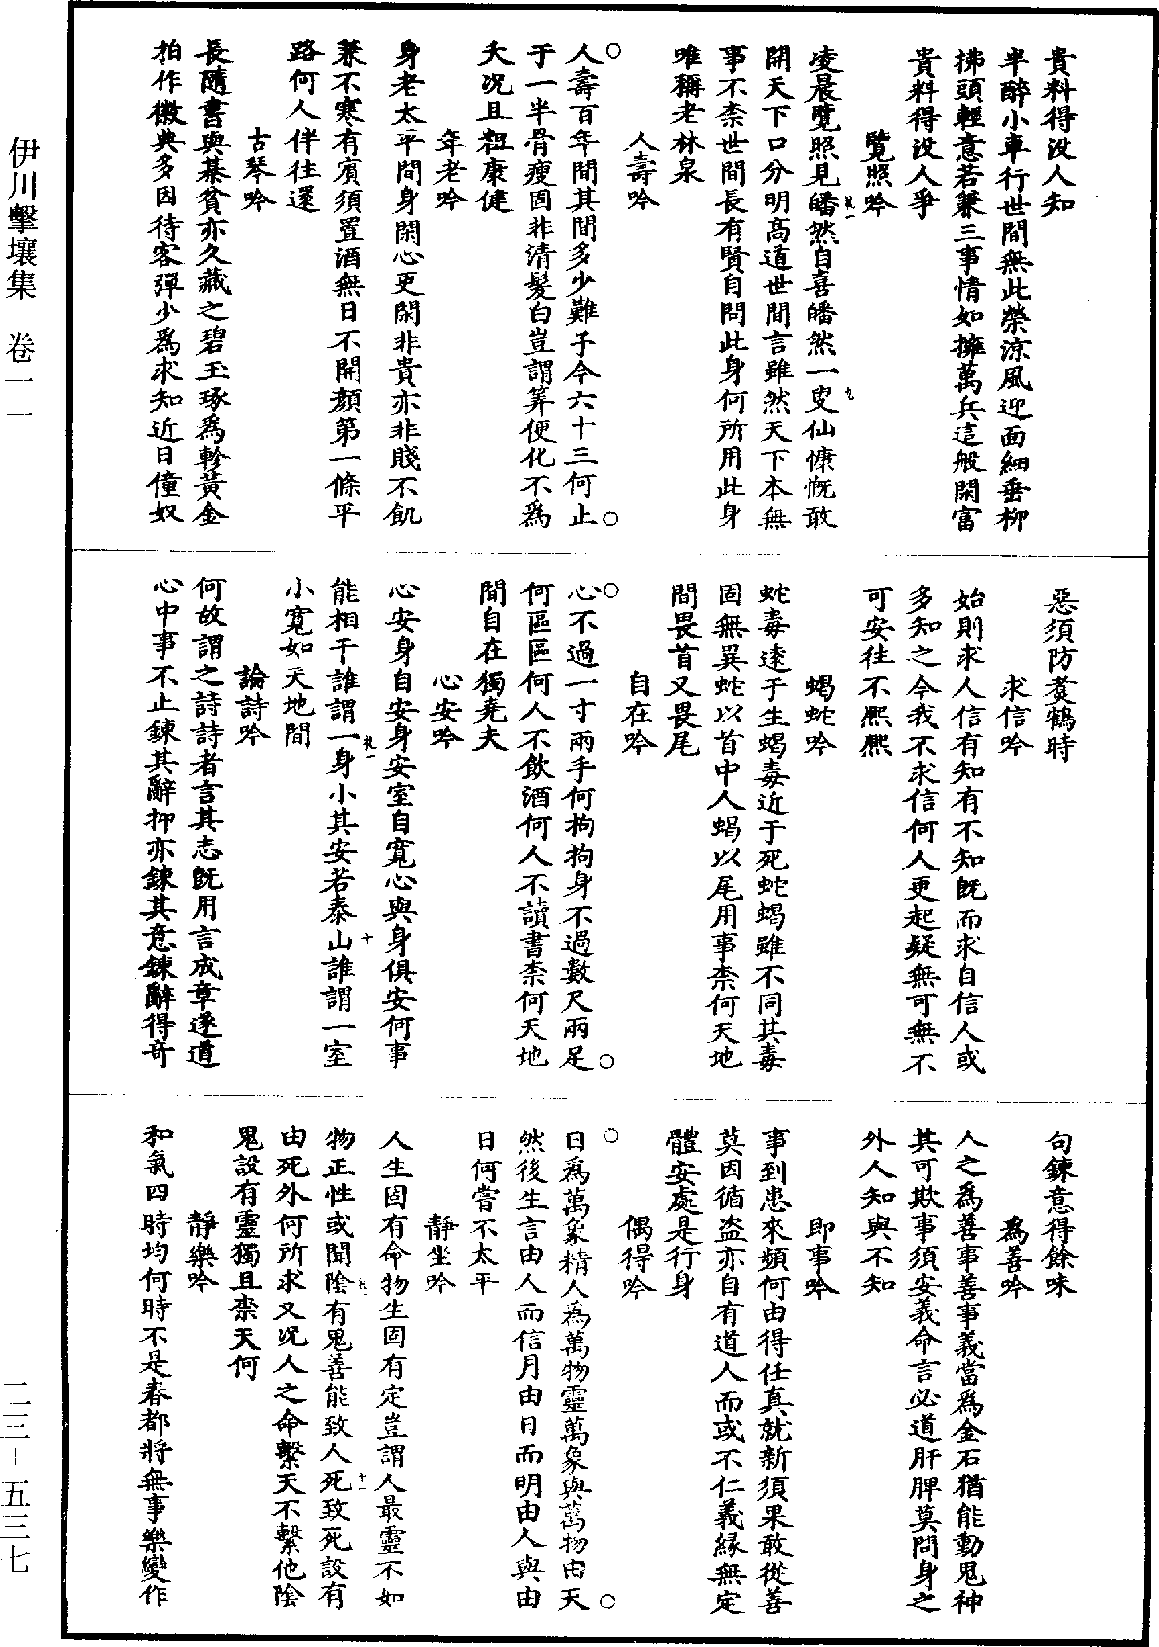 貴料得没人知
半醉小車行世間無此榮涼風迎面細垂柳
拂頭輕意若兼三事情如擁萬兵這般閑富
貴料得没人爭
覽照吟
凌晨覽照見皤然自喜皤然一叟仙慷慨敢
開天下口分明高道世間言雖然天下本無
事不柰世間長有賢自問此身何所用此身
唯稱老林泉
人壽吟
人壽百年間其間多少難予今六十三何止
于一半骨瘦固非清髮白豈謂筭便化不爲
夭况且粗康健
年老吟
身老太平間身閑心更閑非貴亦非賤不飢
兼不寒有賓須置酒無日不開顏第一條平
路何人伴往還
古琴吟
長隨書與棊貧亦久藏之碧玉琢爲軫黄金
拍作徽典多因待客彈少爲求知近日僮奴
惡須防煑鶴時
求信吟
始則求人信有知有不知既而求自信人或
多知之今我不求信何人更起疑無可無不
可安往不熙熙
蝎蛇吟
蛇毒遠于生蝎毒近于死蛇蝎雖不同其毒
固無異蛇以首中人蝎以尾用事柰何天地
間畏首又畏尾
自在吟
心不過一寸兩手何拘拘身不過數尺兩足
何區區何人不飲酒何人不讀書柰何天地
間自在獨堯夫
心安吟
心安身自安身安室自寬心與身俱安何事
能相干誰謂一身小其安若泰山誰謂一室
小寬如天地間
論詩吟
何故謂之詩詩者言其志既用言成章遂道
心中事不止鍊其辭抑亦鍊其意鍊辭得奇
句鍊意得餘味
爲善吟
人之爲善事善事義當爲金石猶能動鬼神
其可欺事須安義命言必道肝脾莫問身之
外人知與不知
即事吟
事到患來頻何由得任真就新須果敢從善
莫因循盗亦自有道人而或不仁義緣無定
體安處是行身
偶得吟
日爲萬象精人爲萬物靈萬象與萬物由天
然後生言由人而信月由日而明由人與由
日何嘗不太平
靜坐吟
人生固有命物生固有定豈謂人最靈不如
物正性或聞陰有鬼善能致人死致死設有
由死外何所求又况人之命繫天不繫他陰
鬼設有靈獨且柰天何
靜樂吟
和氣四時均何時不是春都將無事樂變作
伊川擊壤集 卷一一
二三－五三七